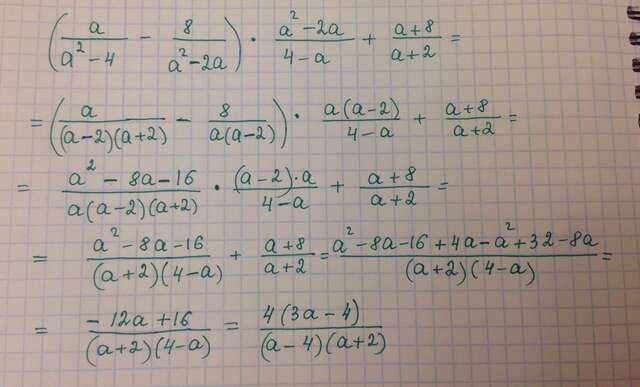 (a/(a² − 4) − 8/(a² − 2a)) · (a² − 2a)/(4 − a) + (a + 8)/(a + 2) =
= (a/((a − 2)(a + 2)) − 8/(a(a − 2))) · a(a − 2)/(4 − a) + (a + 8)/(a + 2) =
= (a² − 8a − 16)/(a(a − 2)(a + 2)) · ((a − 2) · a)/(4 − a) + (a + 8)/(a + 2) =
= (a² − 8a − 16)/((a + 2)(4 − a)) + (a + 8)/(a + 2) = (a² − 8a − 16 + 4a − a² + 32 − 8a)/((a + 2)(4 − a)) =
= (−12a + 16)/((a + 2)(4 − a)) = 4(3a − 4)/((a − 4)(a + 2))